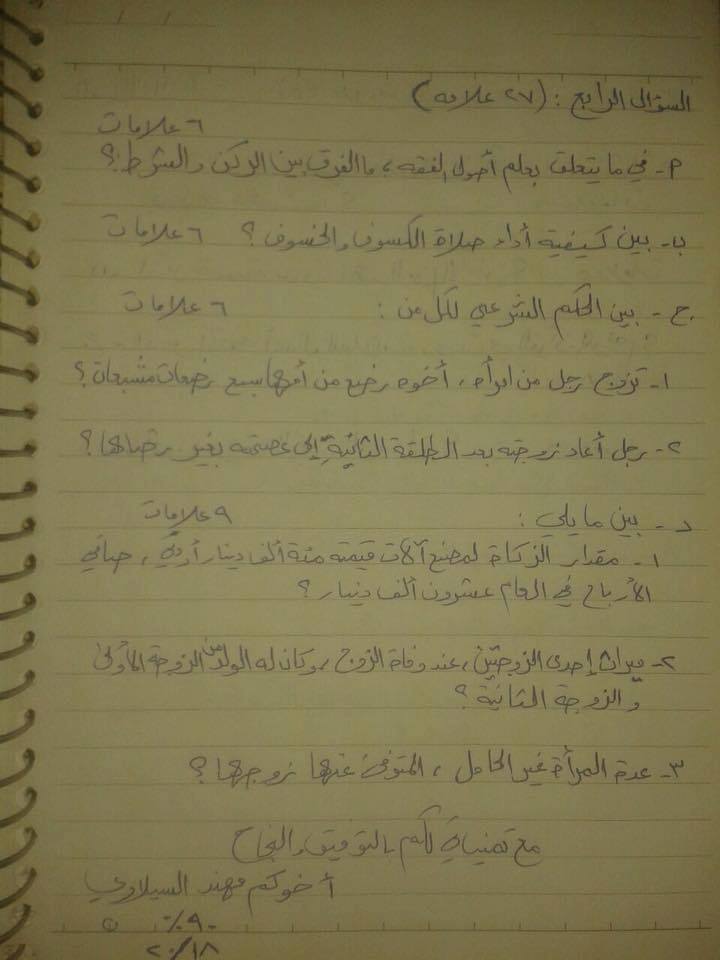 السؤال الرابع : (٢٧ علامه)
٦ علامات
م- في ما يتعلق بعلم أصول الفقه، ما الفرق بين الركن والشرط؟
ب- بين كيفية أداء صلاة الكسوف والخسوف؟ ٦ علامات
ج- بين الحكم الشرعي لكل من : ٦ علامات
١- تزوج رجل من امرأه، أخوه رضع من أمها سبع رضعات مشبعات؟
٢- رجل أعاد زوجته بعد الطلقة الثانية إلى عصمته بغير رضاها؟
د- بين ما يلي : ٩ علامات
١- مقدار الزكاة لمصنع آلات قيمته مئة ألف دينار أردني، صافي
الأرباح في العام عشرون ألف دينار؟
٢- ميراث إحدى الزوجتين، عند وفاة الزوج، وكان له الولد من الزوجة الأولى
والزوجة الثانية؟
٣- عدة المرأة غير الحامل، المتوفى عنها زوجها؟
مع تمنياتي لكم بالتوفيق والنجاح
أخوكم مهند السيلاوي
٩٠٪
٢٠/١٨